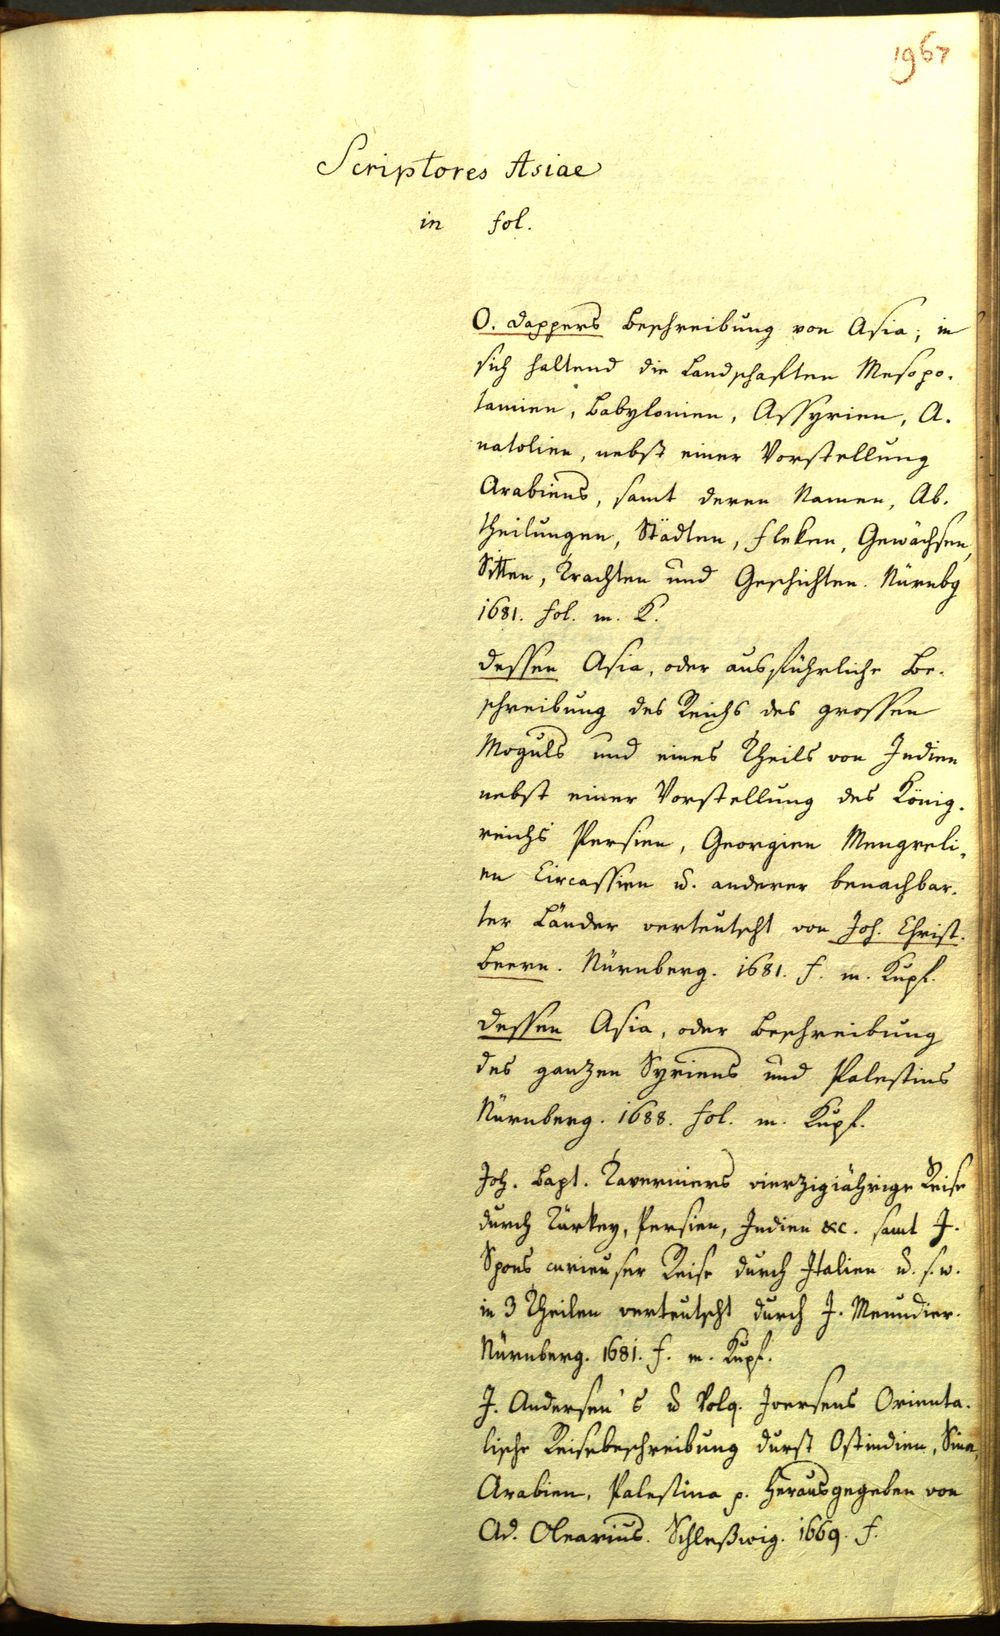 1967
Scriptores Asiae
in fol.
O. Dappers Beschreibung von Asia; in
sich haltend die Landschaften Mesopo-
tamien, Babylonien, Assyrien, A-
natolien, nebst einer Vorstellung
Arabiens, samt deren Namen, Ab-
theilungen, Städten, Fleken, Gewächsen,
Sitten, Trachten und Geschichten. Nürnbg
1681. fol. m. K.
Dessen Asia, oder ausführliche Be-
schreibung des Reichs des grossen
Moguls und eines Theils von Indien
nebst einer Vorstellung des König-
reichs Persien, Georgien Mengreli-
en Circassien u. anderer benachbar-
ter Länder verteutscht von Joh. Christ.
Beern. Nürnberg. 1681. f. m. Kupf.
Dessen Asia, oder Beschreibung
des ganzen Syriens und Palestins
Nürnberg. 1688. fol. m. Kupf.
Joh. Bapt. Taverniers vierzigjährige Reise
durch Türkey, Persien, Indien &c. samt J.
Spons curieuser Reise durch Italien u. s. w.
in 3 Theilen verteutscht durch J. Menudier.
Nürnberg. 1681. f. m. Kupf.
J. Andersen's u Volq. Iversens Orienta-
lische Reisebeschreibung durst Ostindien, Sina,
Arabien, Palestina p. herausgegeben von
Ad. Olearius. Schleßwig. 1669. f.